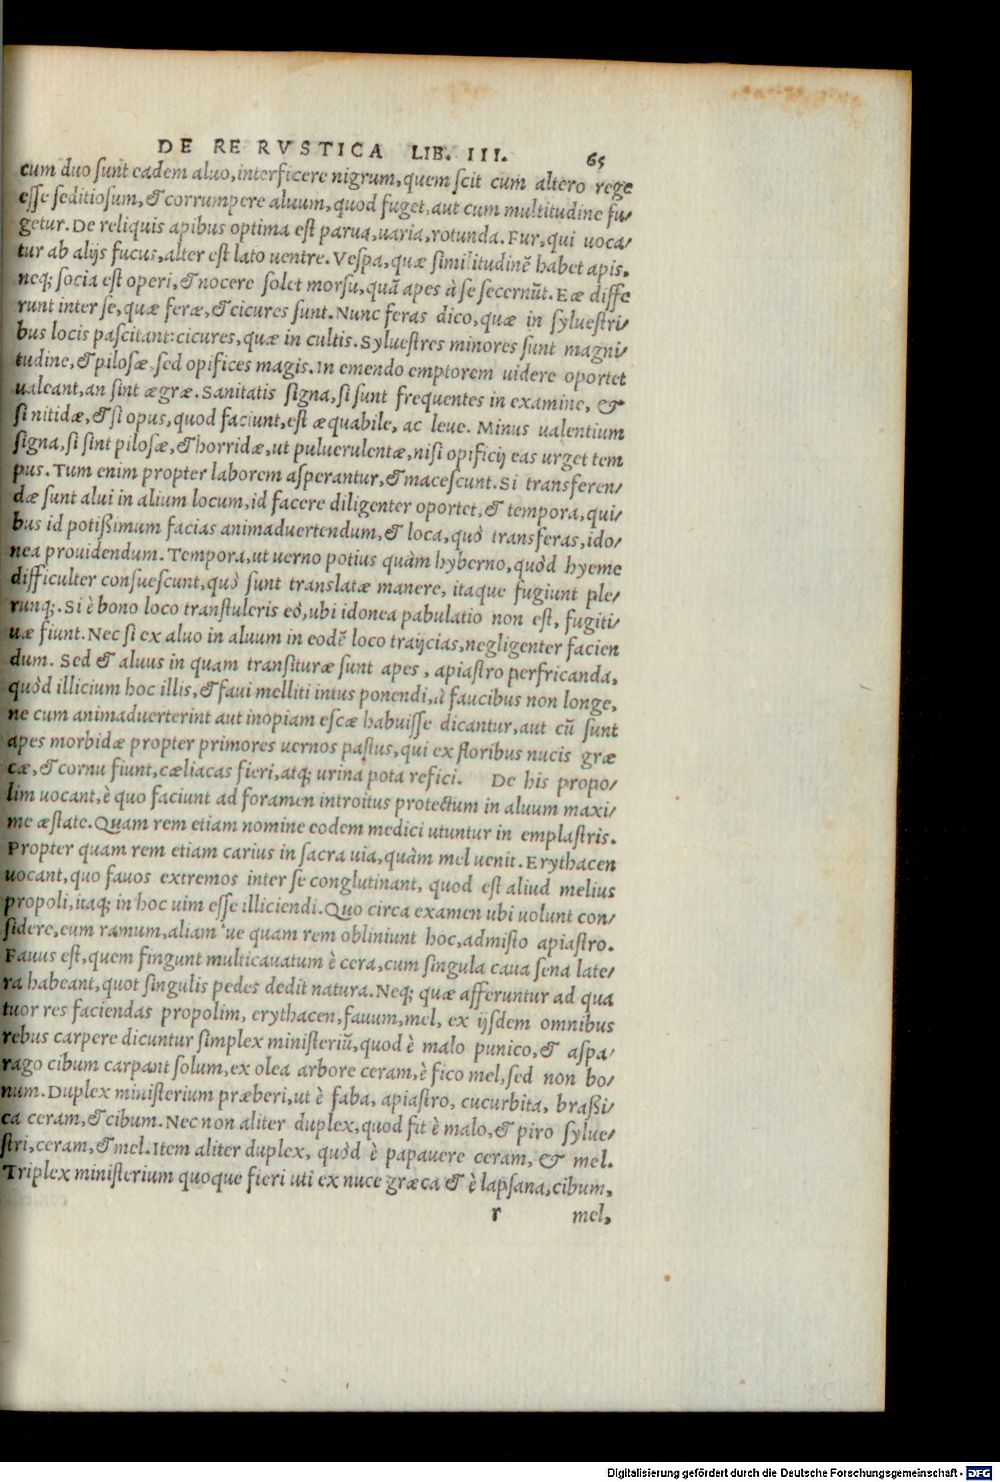 DE RE RVSTICA LIB. III. 65
cum duo ſunt eadem aluo, interficere nigrum, quem ſcit cum altero rege
eſſe ſeditioſum, & corrumpere aluum, quod fuget, aut cum multitudine fu/
getur. De reliquis apibus optima eſt parua, uaria, rotunda. Fur, qui uoca/
tur ab alijs fucus, alter eſt lato uentre. Veſpa, quæ ſimilitudinē habet apis,
neq; ſocia eſt operi, & nocere ſolet morſu, quā apes à ſe ſecernūt. Eæ diffe
runt inter ſe, quæ feræ, & cicures ſunt. Nunc feras dico, quæ in ſylueſtri/
bus locis paſcitant: cicures, quæ in cultis. Sylueſtres minores ſunt magni/
tudine, & piloſæ, ſed opifices magis. In emendo emptorem uidere oportet
ualeant, an ſint ægræ. Sanitatis ſigna, ſi ſunt frequentes in examine, &
ſi nitidæ, & ſi opus, quod faciunt, eſt æquabile, ac leue. Minus ualentium
ſigna, ſi ſint piloſæ, & horridæ, ut puluerulentæ, niſi opificij eas urget tem
pus. Tum enim propter laborem aſperantur, & maceſcunt. Si transferen/
dæ ſunt alui in alium locum, id facere diligenter oportet, & tempora, qui/
bus id potißimum facias animaduertendum, & loca, quò transferas, ido/
nea prouidendum. Tempora, ut uerno potius quàm hyberno, quòd hyeme
difficulter conſueſcunt, quò ſunt translatæ manere, itaque fugiunt ple/
runq;. Si è bono loco tranſtuleris eò, ubi idonea pabulatio non eſt, fugiti/
uæ fiunt. Nec ſi ex aluo in aluum in eodē loco traijcias, negligenter facien
dum. Sed & aluus in quam tranſituræ ſunt apes, apiaſtro perfricanda,
quòd illicium hoc illis, & faui melliti intus ponendi, à faucibus non longe,
ne cum animaduerterint aut inopiam eſcæ habuiſſe dicantur, aut cū ſunt
apes morbidæ propter primores uernos paſtus, qui ex floribus nucis græ
cæ, & cornu fiunt, cæliacas fieri, atq; urina pota refici. De his propo/
lim uocant, è quo faciunt ad foramen introitus protectum in aluum maxi/
me æſtate. Quam rem etiam nomine eodem medici utuntur in emplaſtris.
Propter quam rem etiam carius in ſacra uia, quàm mel uenit. Erythacen
uocant, quo fauos extremos inter ſe conglutinant, quod eſt aliud melius
propoli, itaq; in hoc uim eſſe illiciendi. Quo circa examen ubi uolunt con/
ſidere, eum ramum, aliam 've quam rem obliniunt hoc, admiſto apiaſtro.
Fauus eſt, quem fingunt multicauatum è cera, cum ſingula caua ſena late/
ra habeant, quot ſingulis pedes dedit natura. Neq; quæ afferuntur ad qua
tuor res faciendas propolim, erythacen, fauum, mel, ex ijſdem omnibus
rebus carpere dicuntur ſimplex miniſteriū, quod è malo punico, & aſpa/
rago cibum carpant ſolum, ex olea arbore ceram, è fico mel, ſed non bo/
num. Duplex miniſterium præberi, ut è faba, apiaſtro, cucurbita, braßi/
ca ceram, & cibum. Nec non aliter duplex, quod fit è malo, & piro ſylue/
ſtri, ceram, & mel. Item aliter duplex, quòd è papauere ceram, & mel.
Triplex miniſterium quoque fieri uti ex nuce græca & è lapſana, cibum,
r mel,
Digitalisierung gefördert durch die Deutsche Forschungsgemeinschaft - DFG